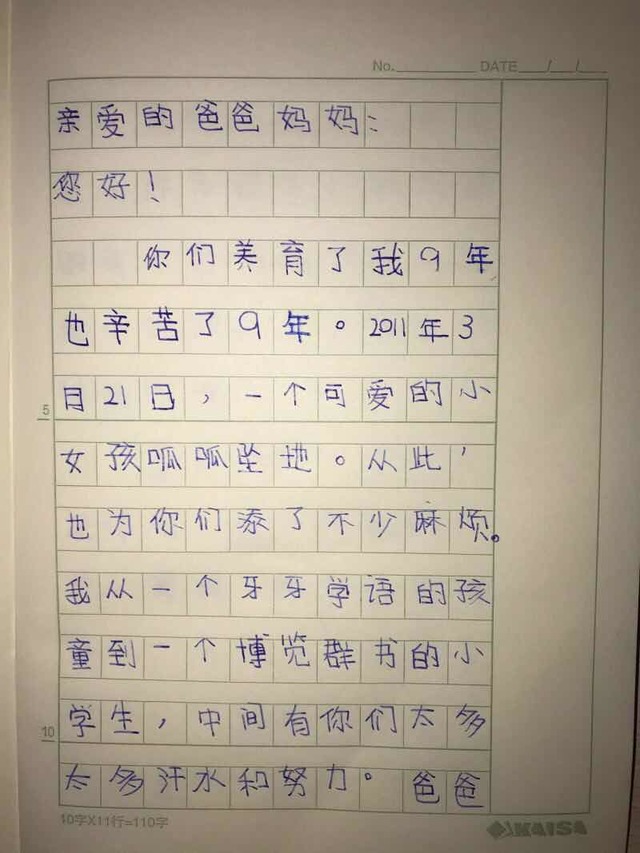 No. DATE / /
亲爱的爸爸妈妈:
您好!
你们养育了我9年
也辛苦了9年。2011年3
5
月21日,一个可爱的小
女孩呱呱坠地。从此,
也为你们添了不少麻烦。
我从一个牙牙学语的孩
童到一个博览群书的小
10
学生,中间有你们太多
太多汗水和努力。爸爸
10字X11行=110字
KAISA